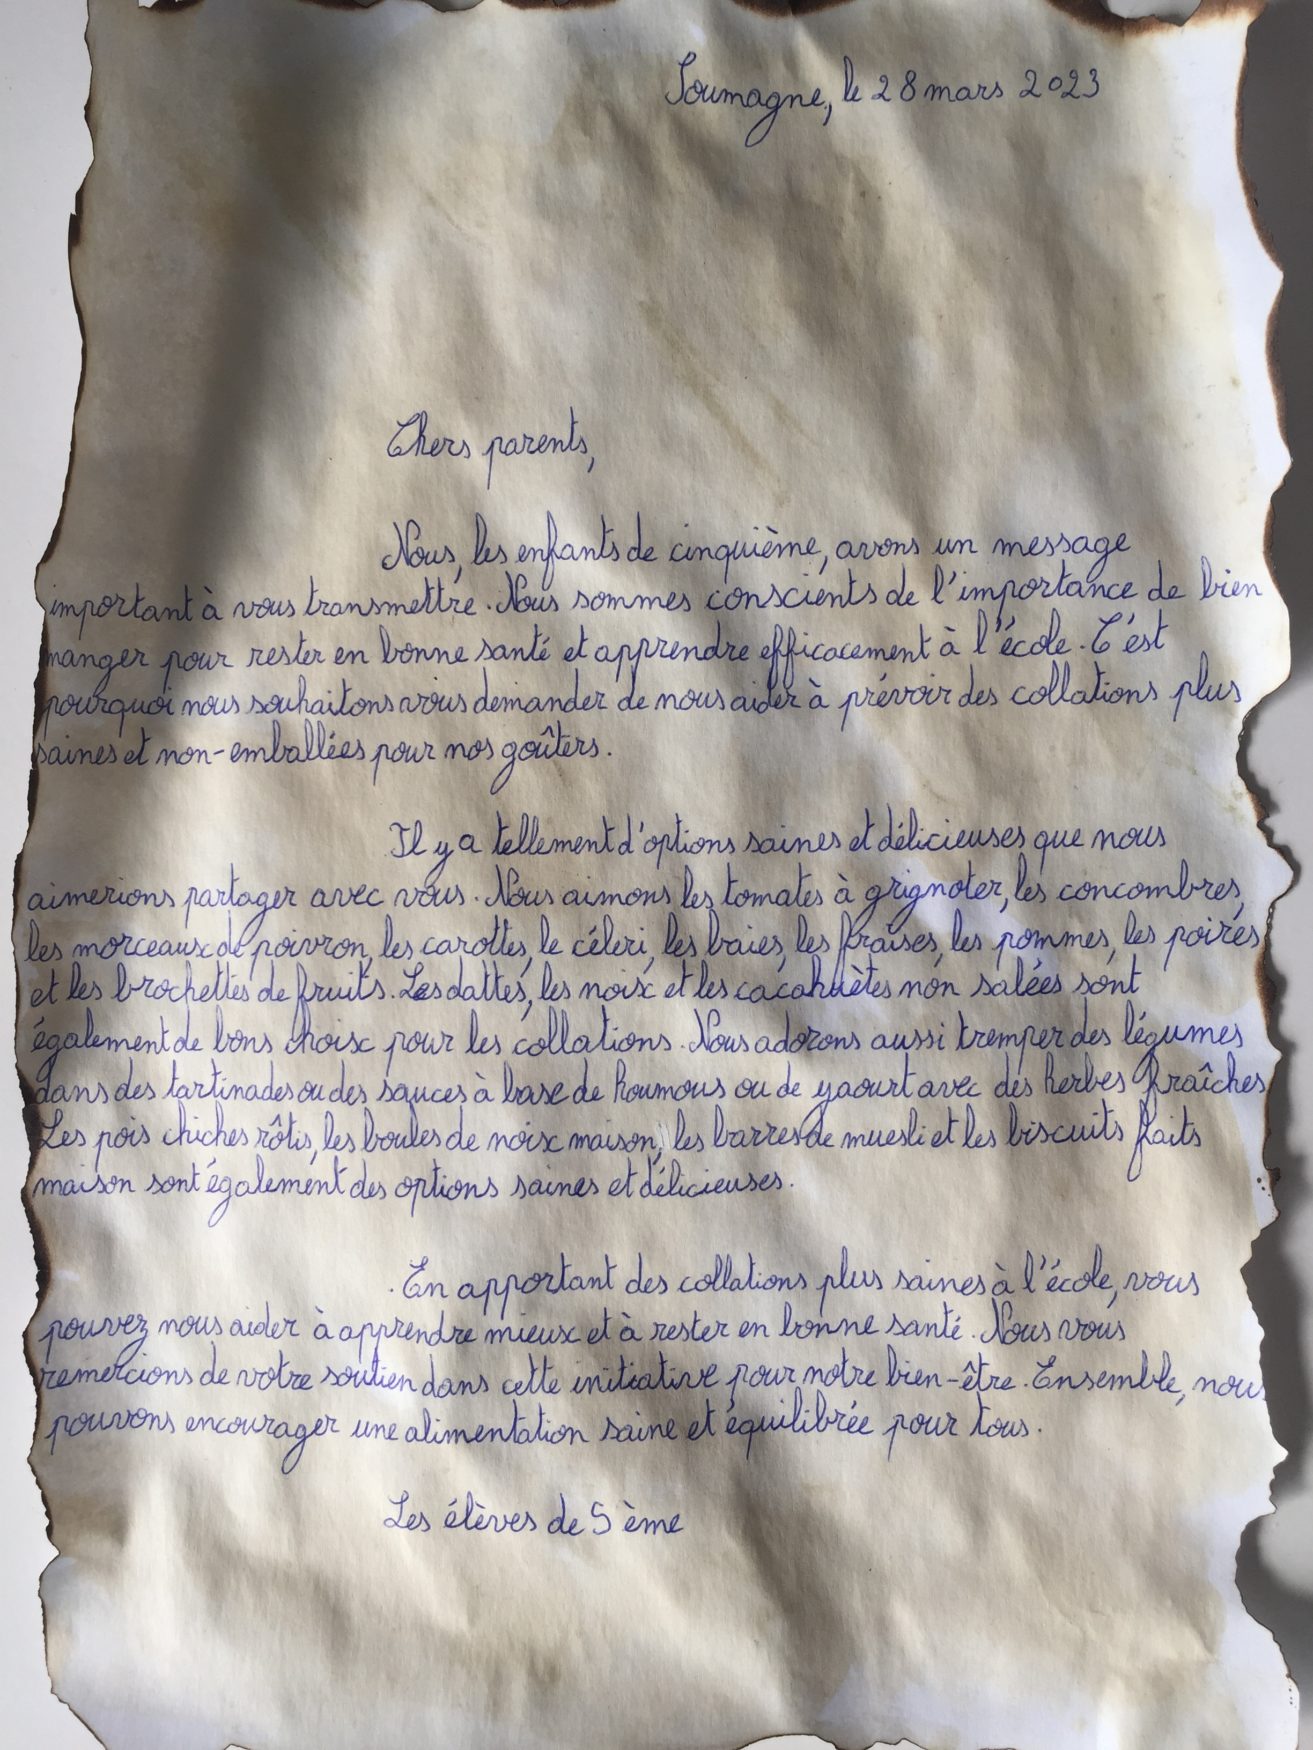 Soumagne, le 28 mars 2023
Chers parents,
Nous, les enfants de cinquième, avons un message
important à vous transmettre. Nous sommes conscients de l'importance de bien
manger pour rester en bonne santé et apprendre efficacement à l'école. C'est
pourquoi nous souhaitons vous demander de nous aider à prévoir des collations plus
saines et non-emballées pour nos goûters.
Il y a tellement d'options saines et délicieuses que nous
aimerions partager avec vous. Nous aimons les tomates à grignoter, les concombres,
les morceaux de poivron, les carottes, le céleri, les baies, les fraises, les pommes, les poires
et les brochettes de fruits. Les dattes, les noix et les cacahuètes non salées sont
également de bons choix pour les collations. Nous adorons aussi tremper des légumes
dans des tartinades ou des sauces à base de houmous ou de yaourt avec des herbes fraîches
Les pois chiches rôtis, les boules de noix maison, les barres de muesli et les biscuits faits
maison sont également des options saines et délicieuses.
En apportant des collations plus saines à l'école, vous
pouvez nous aider à apprendre mieux et à rester en bonne santé. Nous vous
remercions de votre soutien dans cette initiative pour notre bien-être. Ensemble, nous
pouvons encourager une alimentation saine et équilibrée pour tous.
Les élèves de 5 ème